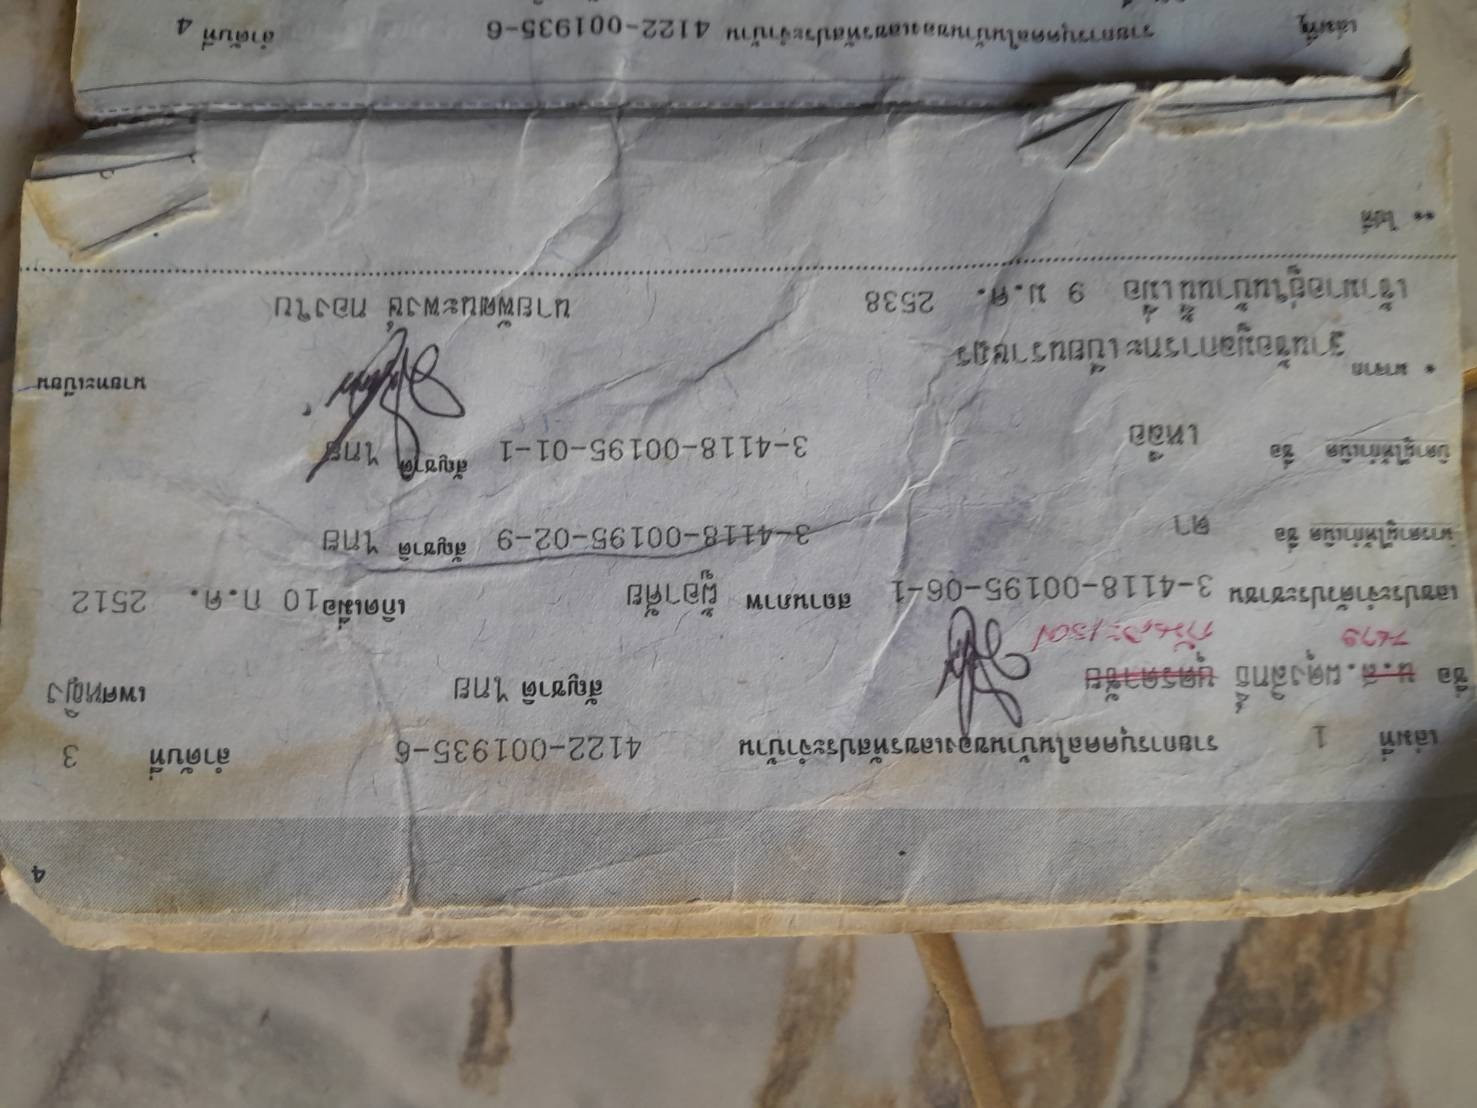 4
เล่มที่ 1 รายการบุคคลในบ้านของเลขรหัสประจำบ้าน 4122-001935-6 ลำดับที่ 3
ชื่อ น.ส.ผดุงสิทธิ์ บุตรดาชัย สัญชาติ ไทย เพศหญิง
นาง
เลขประจำตัวประชาชน 3-4118-00195-06-1 สถานภาพ ผู้อาศัย เกิดเมื่อ 10 ก.ค. 2512
มารดาผู้ให้กำเนิด ชื่อ ดา 3-4118-00195-02-9 สัญชาติ ไทย
บิดาผู้ให้กำเนิด ชื่อ เหลือ 3-4118-00195-01-1 สัญชาติ ไทย
* มาจาก ฐานข้อมูลการทะเบียนราษฎร นายทะเบียน
เข้ามาอยู่ในบ้านนี้เมื่อ 9 ม.ค. 2538 นายพัฒนะพงษ์ ทองใบ
** ไปที่
เล่มที่ รายการบุคคลในบ้านของเลขรหัสประจำบ้าน 4122-001935-6 ลำดับที่ 4